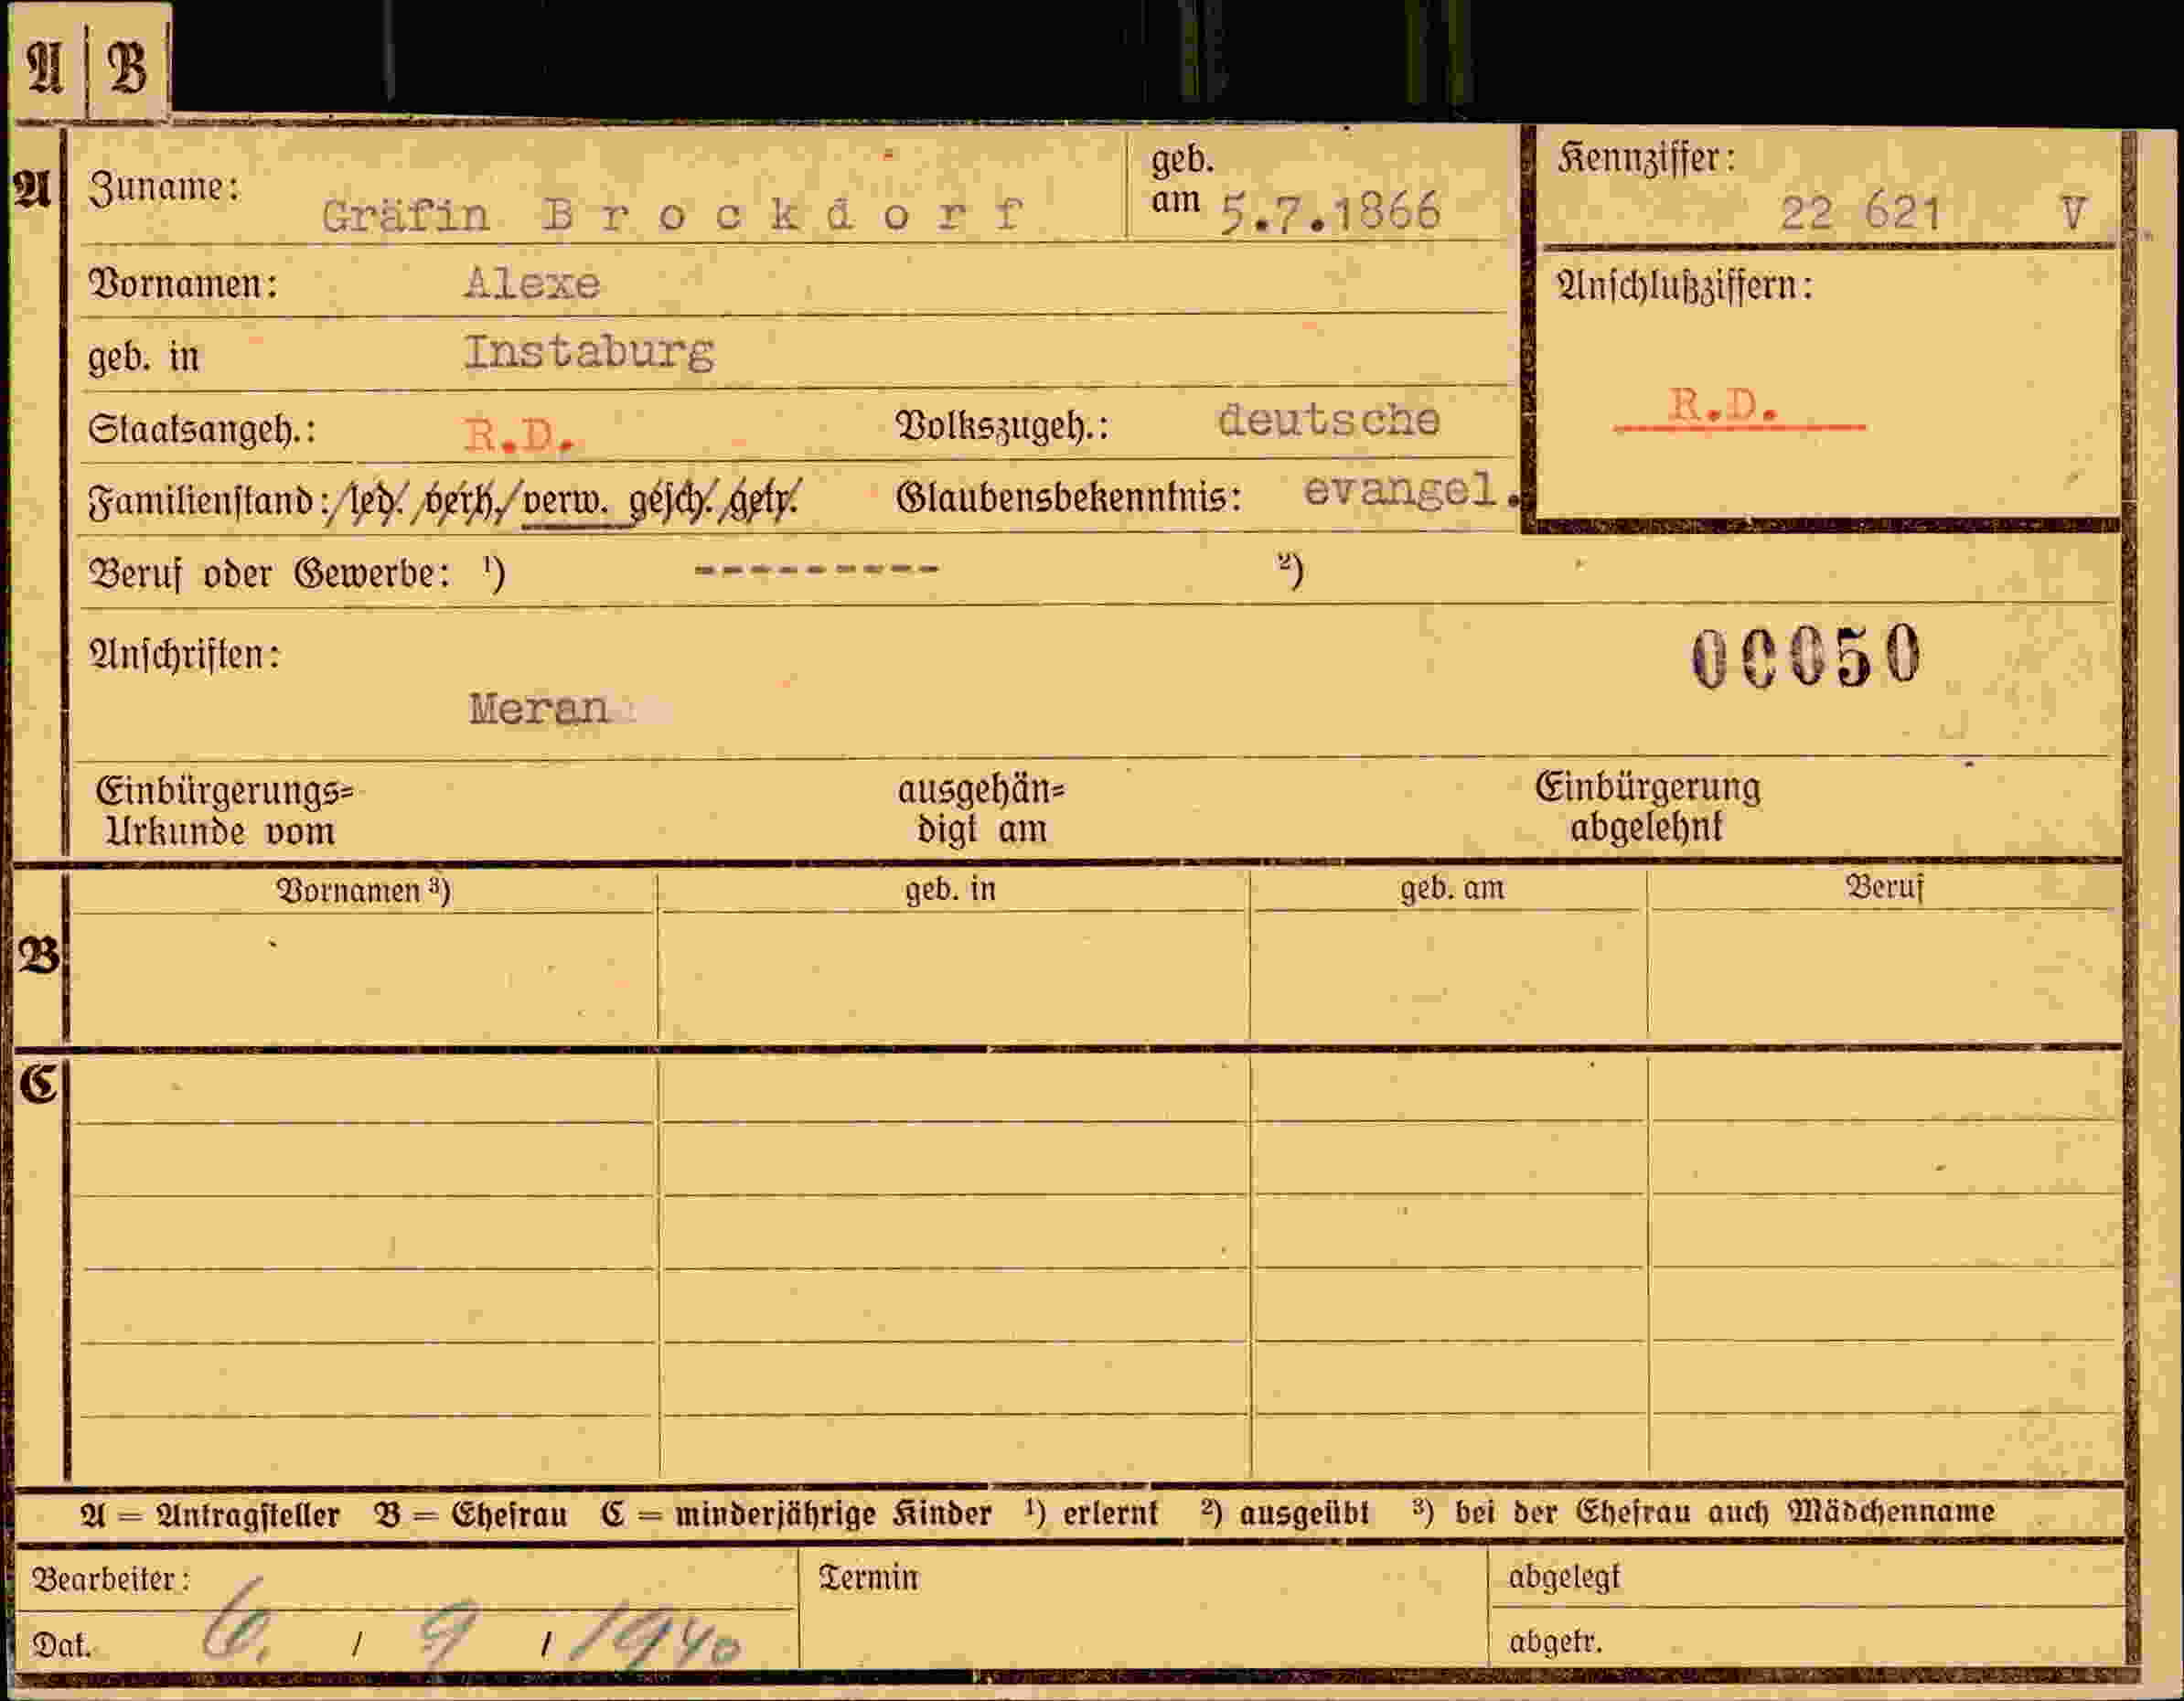 A B
A Zuname: Gräfin B r o c k d o r f geb. am 5.7.1866 Kennziffer: 22 621 V
Vornamen: Alexe Anschlußziffern:
geb. in Instaburg
Staatsangeh.: R.D. Volkszugeh.: deutsche R.D.
Familienstand: led. verh. verw. gesch. getr. Glaubensbekenntnis: evangel.
Beruf oder Gewerbe: ¹) --------- ²)
Anschriften: 00050
Meran
Einbürgerungs= ausgehän= Einbürgerung
Urkunde vom digt am abgelehnt
Vornamen ³) geb. in geb. am Beruf
B
C
A = Antragsteller B = Ehefrau C = minderjährige Kinder ¹) erlernt ²) ausgeübt ³) bei der Ehefrau auch Mädchenname
Bearbeiter: Termin abgelegt
Dat. 6. / 9 / 1940 abgetr.